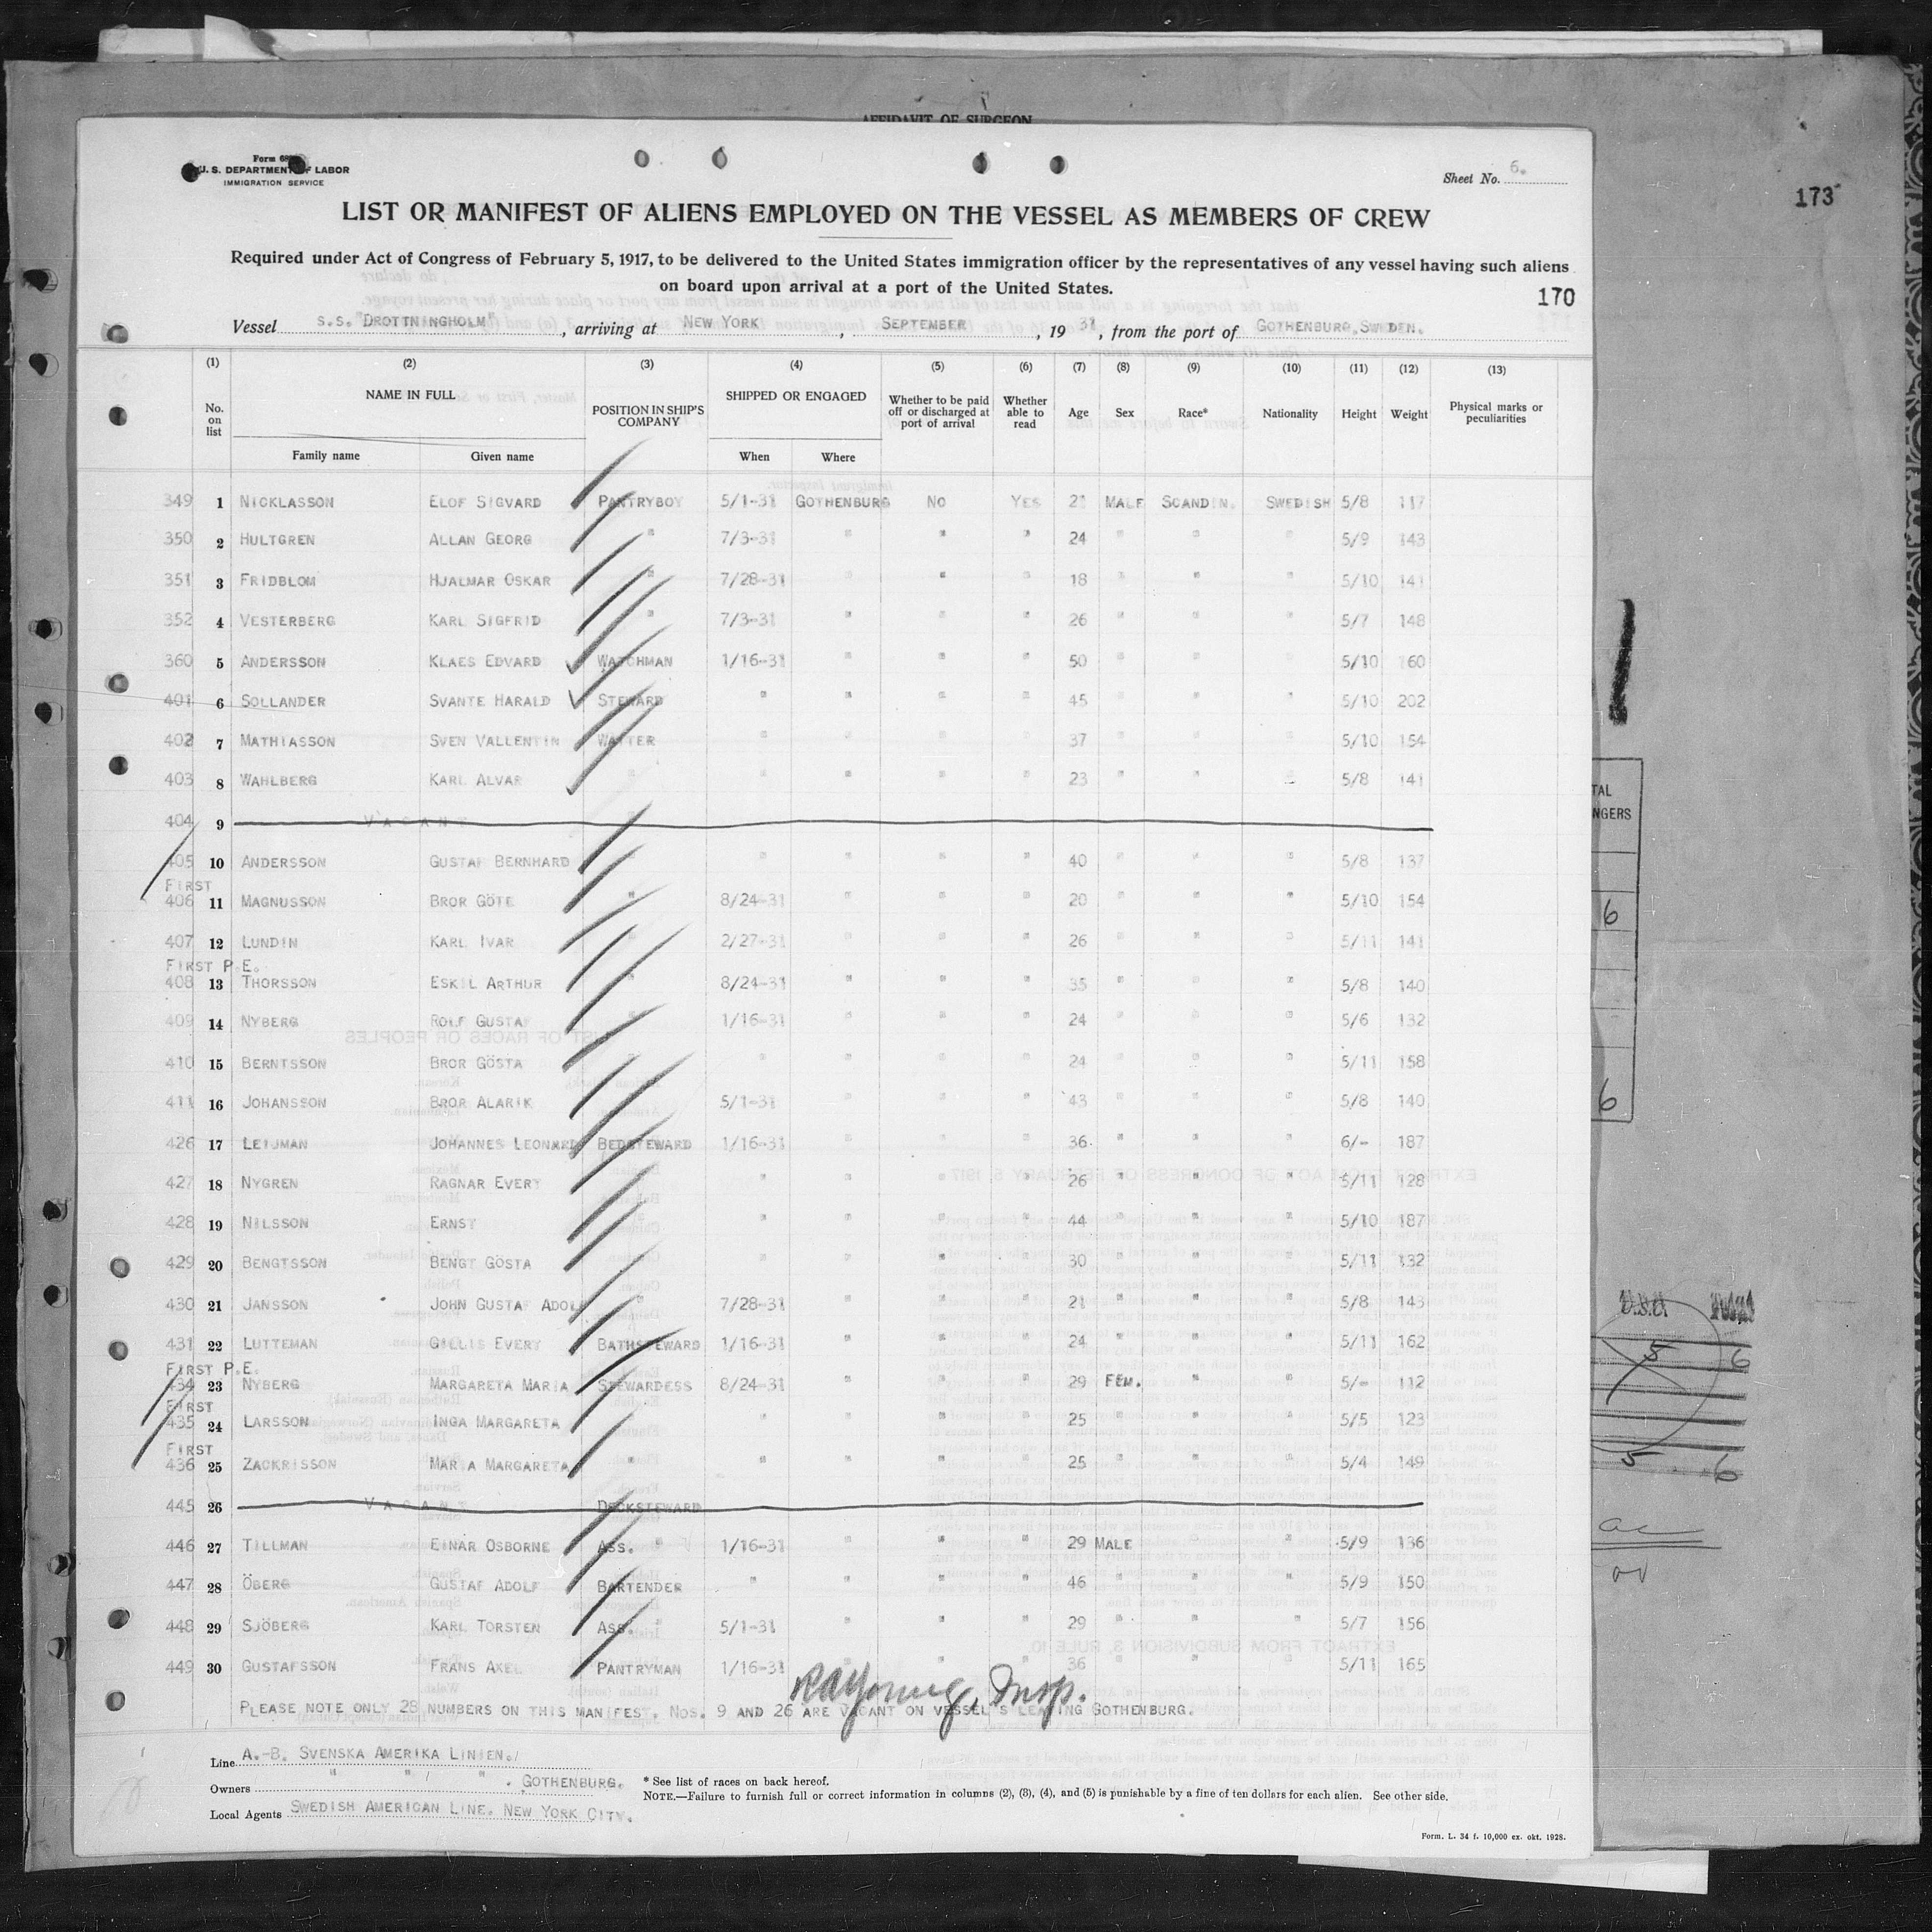 AFFIDAVIT OF SURGEON
173
U. S. DEPARTMENT OF LABOR
IMMIGRATION SERVICE
Sheet No. 6.
LIST OR MANIFEST OF ALIENS EMPLOYED ON THE VESSEL AS MEMBERS OF CREW
Required under Act of Congress of February 5, 1917, to be delivered to the United States immigration officer by the representatives of any vessel having such aliens
on board upon arrival at a port of the United States.
170
Vessel S.S. "DROTTNINGHOLM", arriving at NEW YORK, SEPTEMBER, 19 31, from the port of GOTHENBURG, SWEDEN.
(1) (2) (3) (4) (5) (6) (7) (8) (9) (10) (11) (12) (13)
No. on list NAME IN FULL Family name Given name POSITION IN SHIP'S COMPANY SHIPPED OR ENGAGED When Where Whether to be paid off or discharged at port of arrival Whether able to read Age Sex Race* Nationality Height Weight Physical marks or peculiarities
349 1 NICKLASSON ELOF SIGVARD PANTRYBOY 5/1-31 GOTHENBURG NO YES 21 MALE SCANDIN. SWEDISH 5/8 117
350 2 HULTGREN ALLAN GEORG " 7/3-31 " " " 24 " " " 5/9 143
351 3 FRIDBLOM HJALMAR OSKAR " 7/28-31 " " " 18 " " " 5/10 141
352 4 VESTERBERG KARL SIGFRID " 7/3-31 " " " 26 " " " 5/7 148
360 5 ANDERSSON KLAES EDVARD WATCHMAN 1/16-31 " " " 50 " " " 5/10 160
401 6 SOLLANDER SVANTE HARALD STEWARD " " " " 45 " " " 5/10 202
402 7 MATHIASSON SVEN VALLENTIN WAITER " " " " 37 " " " 5/10 154
403 8 WAHLBERG KARL ALVAR " " " " " 23 " " " 5/8 141
404 9 VACANT
405 10 ANDERSSON GUSTAF BERNHARD " " " " " 40 " " " 5/8 137
FIRST
406 11 MAGNUSSON BROR GÖTE " 8/24-31 " " " 20 " " " 5/10 154
407 12 LUNDIN KARL IVAR " 2/27-31 " " " 26 " " " 5/11 141
FIRST P.E.
408 13 THORSSON ESKIL ARTHUR " 8/24-31 " " " 35 " " " 5/8 140
409 14 NYBERG ROLF GUSTAF " 1/16-31 " " " 24 " " " 5/6 132
410 15 BERNTSSON BROR GÖSTA " " " " " 24 " " " 5/11 158
411 16 JOHANSSON BROR ALARIK " 5/1-31 " " " 43 " " " 5/8 140
426 17 LEIJMAN JOHANNES LEONARD BEDSTEWARD 1/16-31 " " " 36 " " " 6/- 187
427 18 NYGREN RAGNAR EVERT " " " " " 26 " " " 5/11 128
428 19 NILSSON ERNST " " " " " 44 " " " 5/10 187
429 20 BENGTSSON BENGT GÖSTA " " " " " 30 " " " 5/11 132
430 21 JANSSON JOHN GUSTAF ADOLF " 7/28-31 " " " 21 " " " 5/8 143
431 22 LUTTEMAN GILLIS EVERT BATHSTEWARD 1/16-31 " " " 24 " " " 5/11 162
FIRST P.E.
434 23 NYBERG MARGARETA MARIA STEWARDESS 8/24-31 " " " 29 FEM. " " 5/- 112
FIRST
435 24 LARSSON INGA MARGARETA " " " " " 25 " " " 5/5 123
FIRST
436 25 ZACKRISSON MARIA MARGARETA " " " " " 25 " " " 5/4 149
445 26 VACANT DECKSTEWARD
446 27 TILLMAN EINAR OSBORNE ASS. " 1/16-31 " " " 29 MALE " " 5/9 136
447 28 ÖBERG GUSTAF ADOLF BARTENDER " " " " 46 " " " 5/9 150
448 29 SJÖBERG KARL TORSTEN ASS. " 5/1-31 " " " 29 " " " 5/7 156
449 30 GUSTAFSSON FRANS AXEL PANTRYMAN 1/16-31 " " " 36 " " " 5/11 165
RA Young, Insp.
PLEASE NOTE ONLY 28 NUMBERS ON THIS MANIFEST. NOS. 9 AND 26 ARE VACANT ON VESSEL'S LEAVING GOTHENBURG.
Line A.-B. SVENSKA AMERIKA LINIEN.
Owners " " " . GOTHENBURG.
Local Agents SWEDISH AMERICAN LINE. NEW YORK CITY.
* See list of races on back hereof.
NOTE.—Failure to furnish full or correct information in columns (2), (3), (4), and (5) is punishable by a fine of ten dollars for each alien. See other side.
Form. L. 34 f. 10,000 ex. okt. 1928.
6
6
5 6
5 6